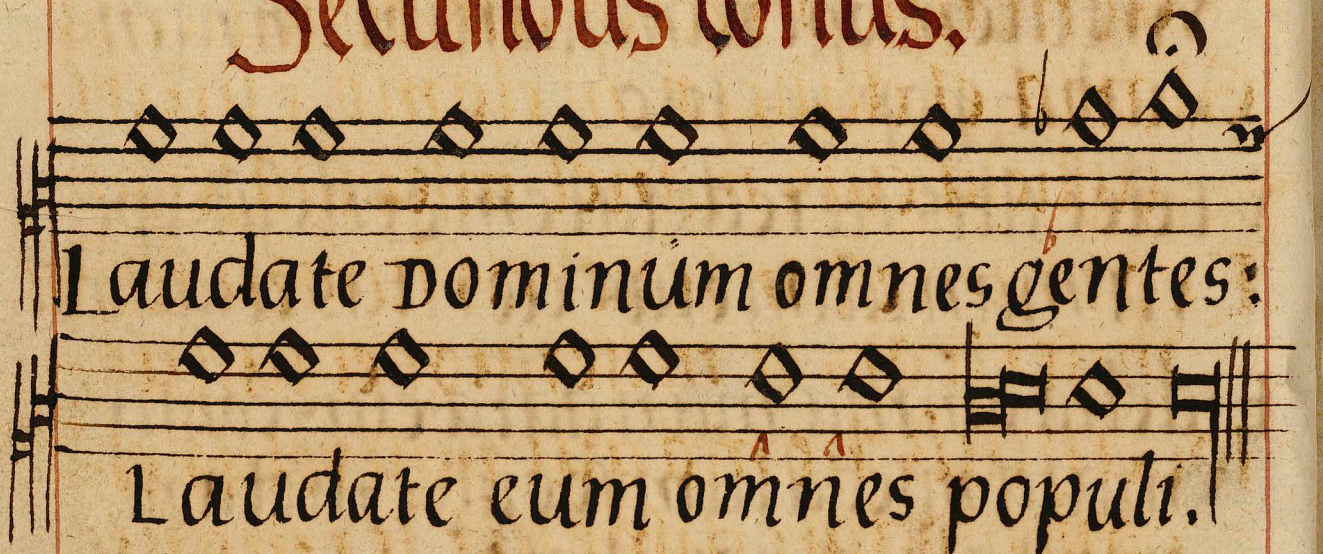 Secundus tonus.
Laudate Dominum omnes gentes:
Laudate eum omnes populi.